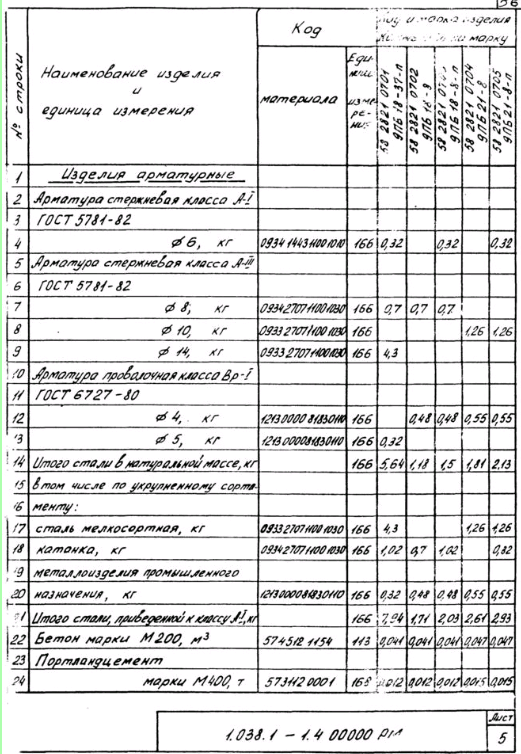 56
№ строки | Наименование изделия и единица измерения | Код | марка изделия на марку
материала | Единица измерения | 58 2821 0701 9ПБ 18-37-п | 58 2821 0702 9ПБ 16-8 | 58 2821 9ПБ 18-8-п | 58 2821 0704 9ПБ 21-8 | 58 2821 0705 9ПБ 21-8-п
1 Изделия арматурные
2 Арматура стержневая класса А-I
3 ГОСТ 5781-82
4 ⌀ 6, кг 166 0,32 0,32 0,32
5 Арматура стержневая класса А-III
6 ГОСТ 5781-82
7 ⌀ 8, кг 0934270711001030 166 0,7 0,7 0,7
8 ⌀ 10, кг 0933270711001030 166 1,26 1,26
9 ⌀ 14, кг 0933270711001030 166 4,3
10 Арматура проволочная класса Вр-I
11 ГОСТ 6727-80
12 ⌀ 4, кг 166 0,48 0,48 0,55 0,55
13 ⌀ 5, кг 166 0,32
14 Итого стали в натуральной массе, кг 166 5,64 1,18 1,5 1,81 2,13
15 в том числе по укрупненному сорта-
16 менту:
17 сталь мелкосортная, кг 0933270711001030 166 4,3 1,26 1,26
18 катанка, кг 0934270711001030 166 1,02 0,7 1,02 0,32
19 металлоизделия промышленного
20 назначения, кг 166 0,32 0,48 0,48 0,55 0,55
21 Итого стали, приведенной к классу А-I, кг 166 7,94 1,71 2,03 2,61 2,93
22 Бетон марки М200, м³ 574512 1154 113 0,041 0,041 0,041 0,047 0,047
23 Портландцемент
24 марки М400, т 573112 0001 168 0,012 0,012 0,012 0,015 0,015
1.038.1 - 1.4 00000 РМ
Лист
5